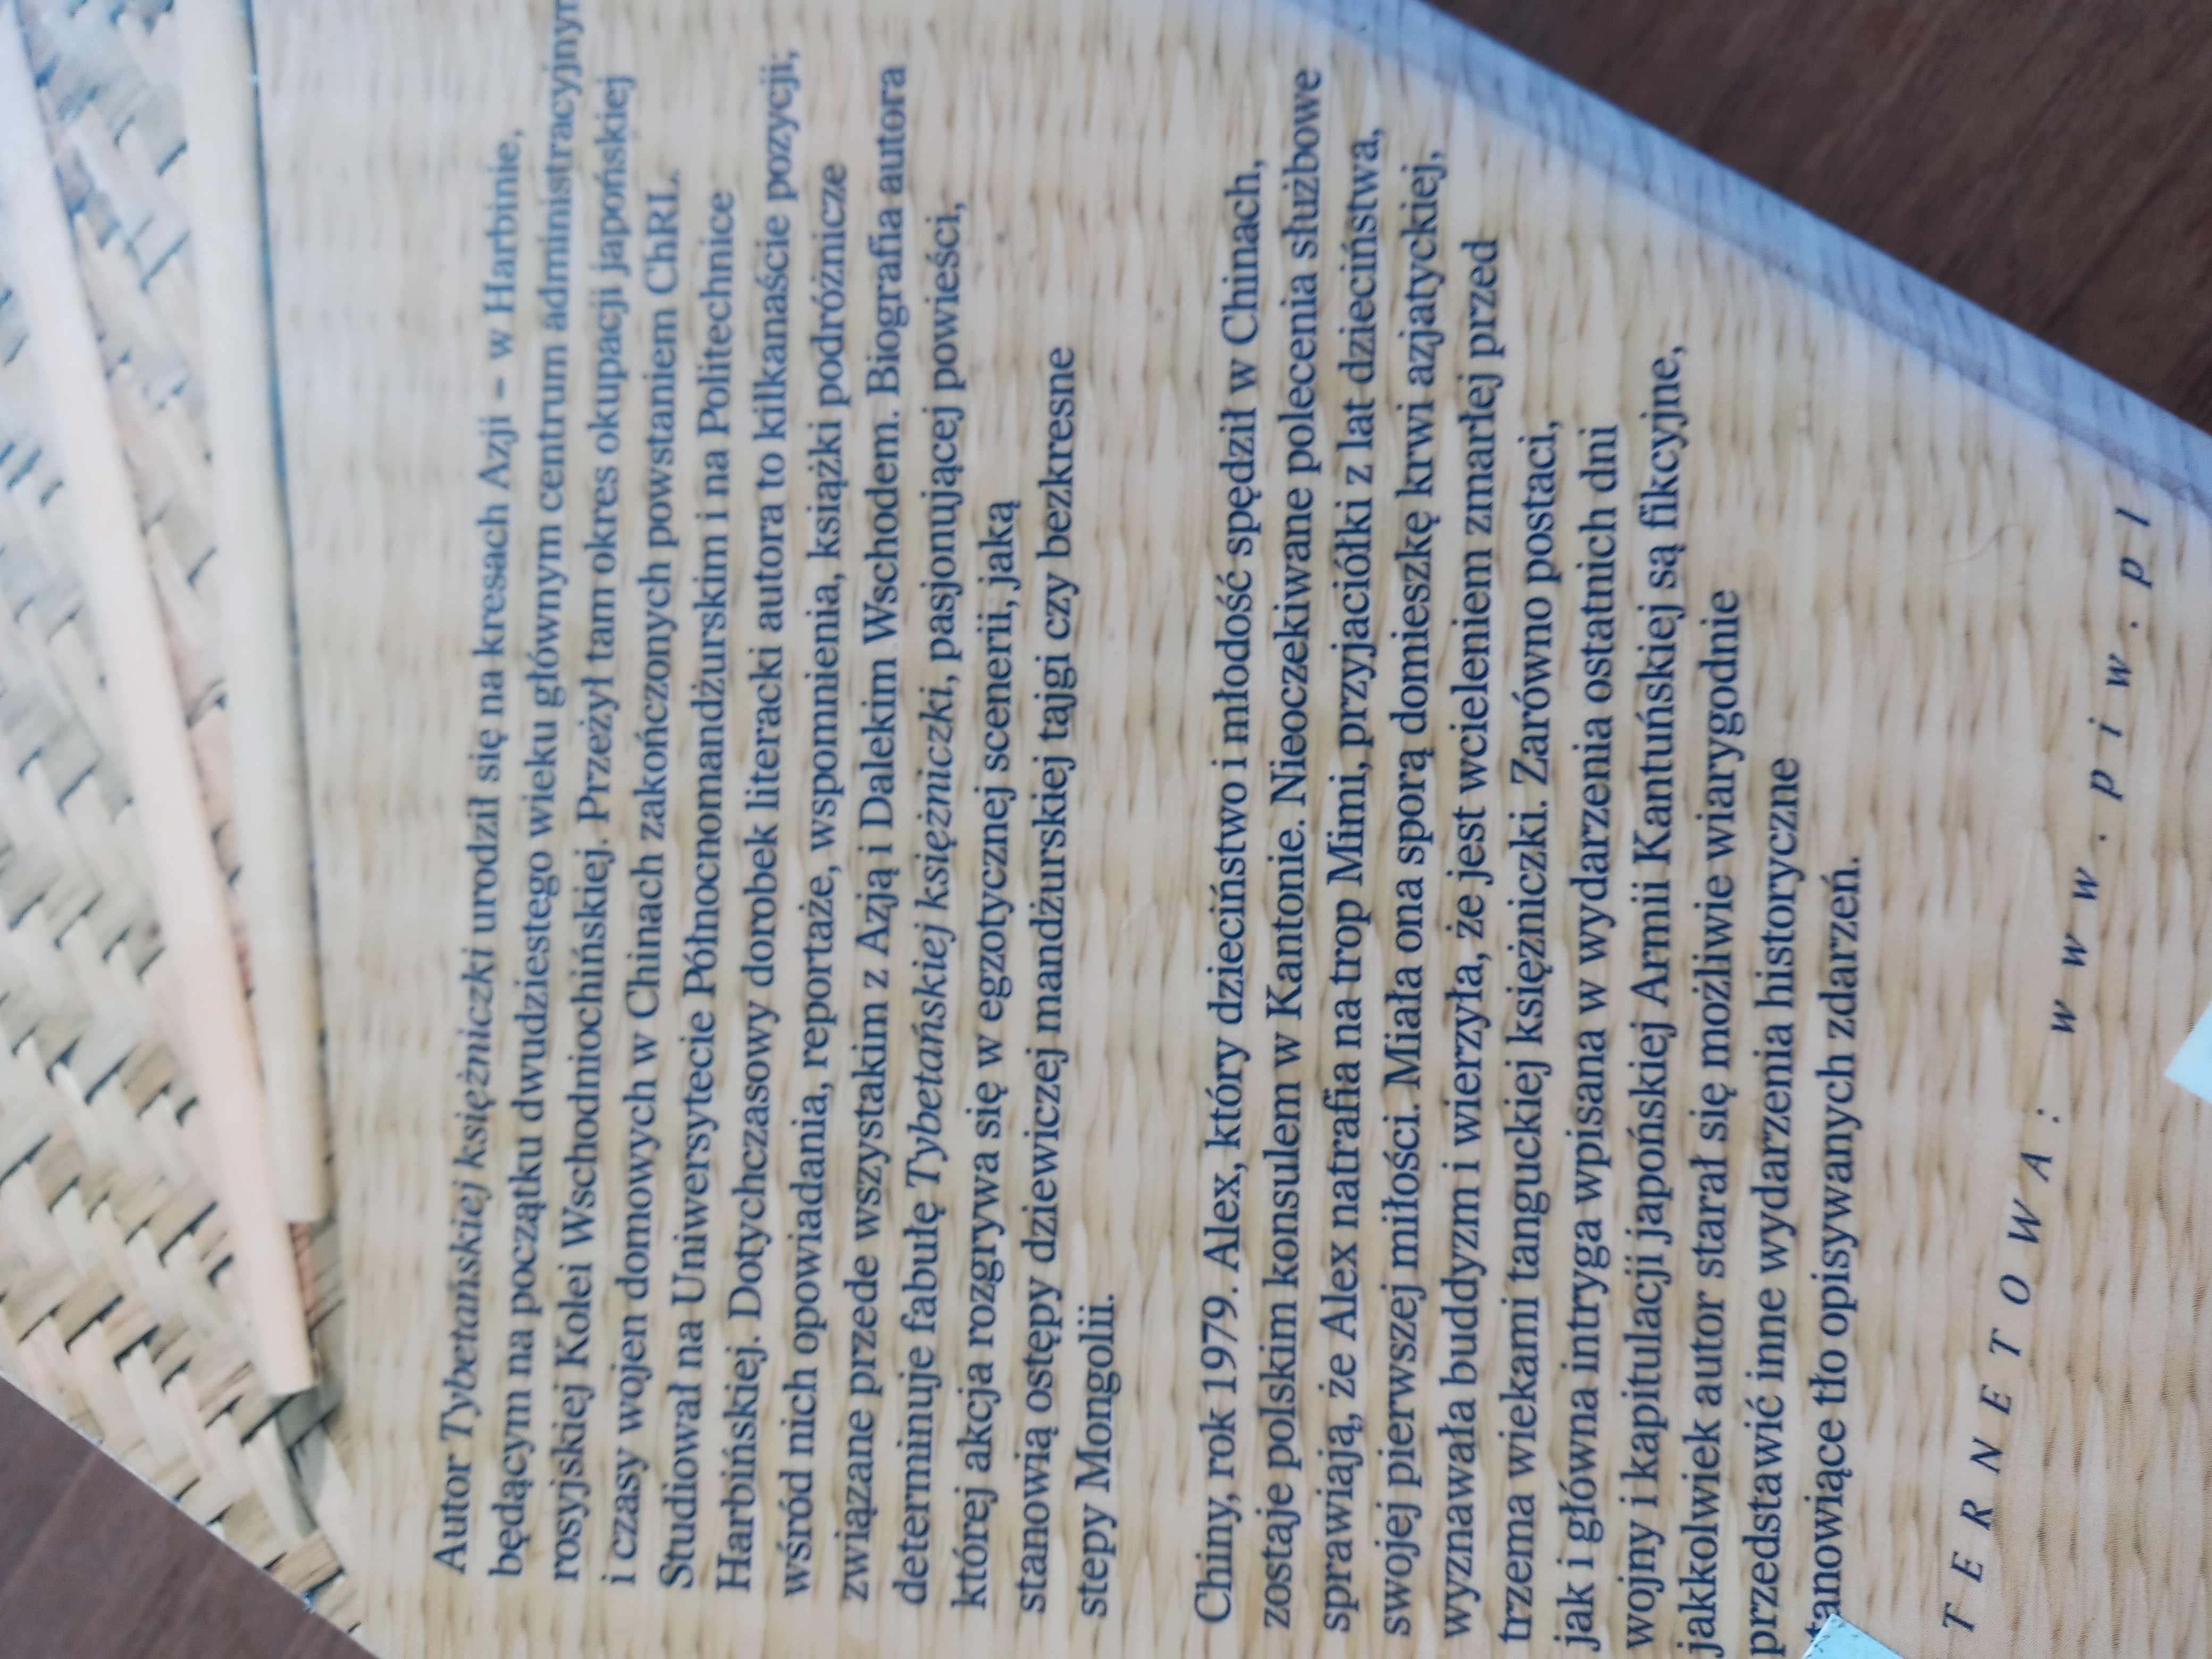 Autor Tybetańskiej księżniczki urodził się na kresach Azji – w Harbinie,
będącym na początku dwudziestego wieku głównym centrum administracyjnym
rosyjskiej Kolei Wschodniochińskiej. Przeżył tam okres okupacji japońskiej
i czasy wojen domowych w Chinach zakończonych powstaniem ChRL.
Studiował na Uniwersytecie Północnomandżurskim i na Politechnice
Harbińskiej. Dotychczasowy dorobek literacki autora to kilkanaście pozycji;
wśród nich opowiadania, reportaże, wspomnienia, książki podróżnicze
związane przede wszystakim z Azją i Dalekim Wschodem. Biografia autora
determinuje fabułę Tybetańskiej księżniczki, pasjonującej powieści,
której akcja rozgrywa się w egzotycznej scenerii, jaką
stanowią ostępy dziewiczej mandżurskiej tajgi czy bezkresne
stepy Mongolii.
Chiny, rok 1979. Alex, który dzieciństwo i młodość spędził w Chinach,
zostaje polskim konsulem w Kantonie. Nieoczekiwane polecenia służbowe
sprawiają, że Alex natrafia na trop Mimi, przyjaciółki z lat dzieciństwa,
swojej pierwszej miłości. Miała ona sporą domieszkę krwi azjatyckiej,
wyznawała buddyzm i wierzyła, że jest wcieleniem zmarłej przed
trzema wiekami tanguckiej księżniczki. Zarówno postaci,
jak i główna intryga wpisana w wydarzenia ostatnich dni
wojny i kapitulacji japońskiej Armii Kantuńskiej są fikcyjne,
jakkolwiek autor starał się możliwie wiarygodnie
przedstawić inne wydarzenia historyczne
stanowiące tło opisywanych zdarzeń.
TERNETOWA: www.piw.pl